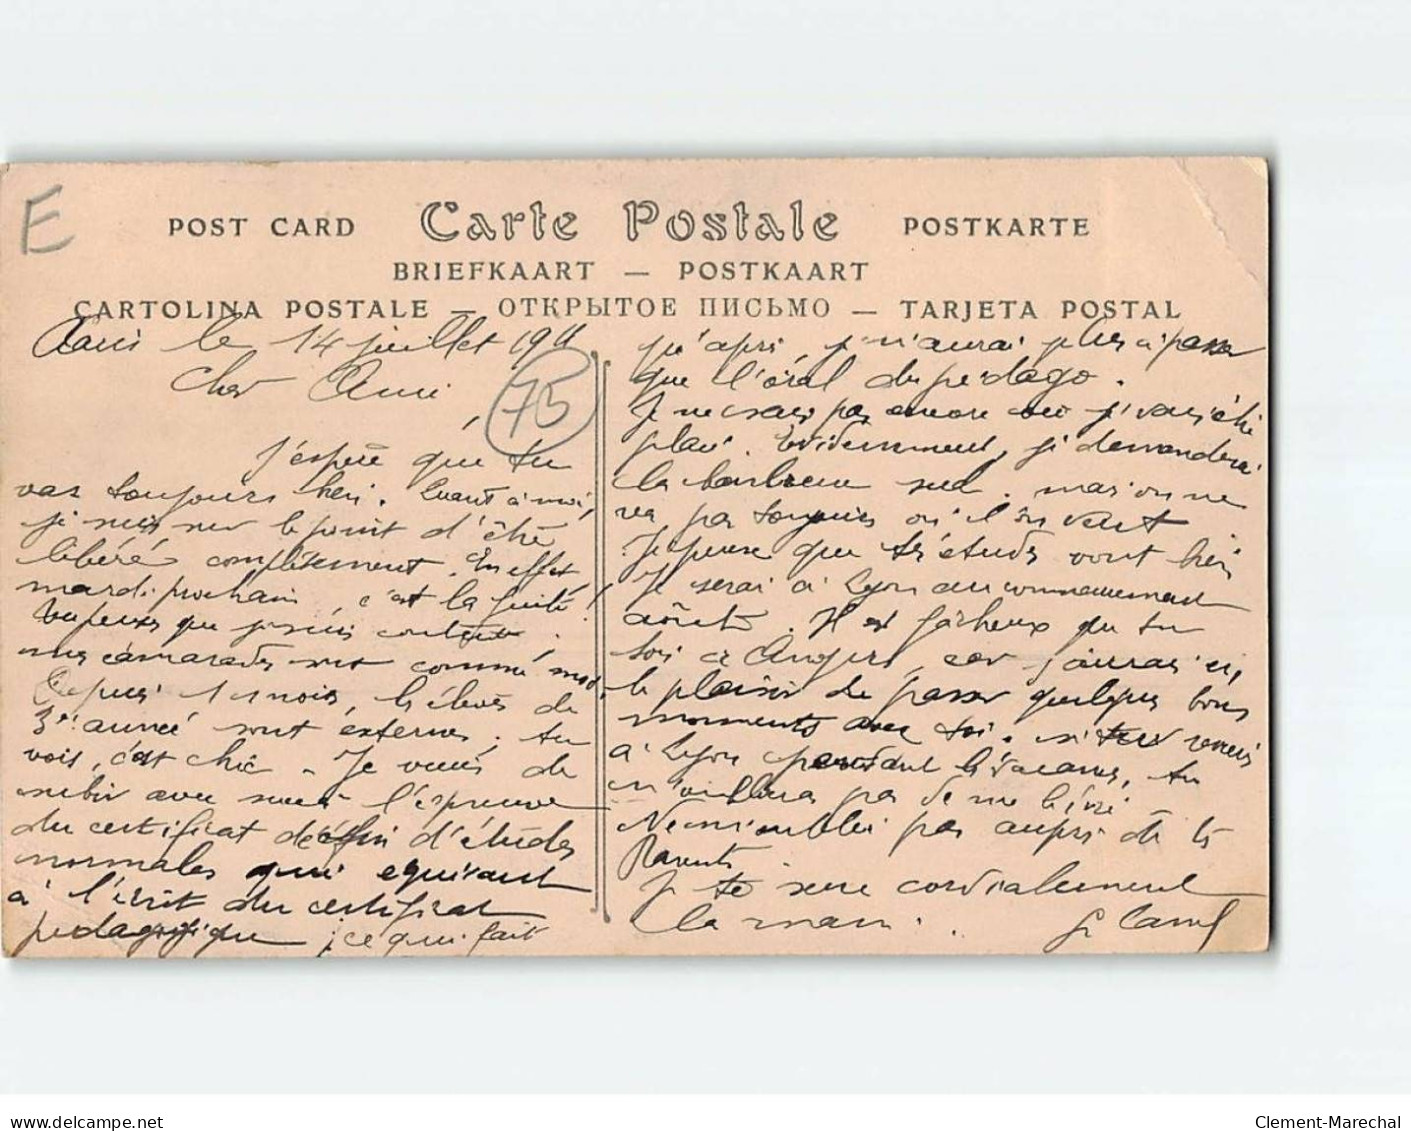 E
POST CARD Carte Postale POSTKARTE
BRIEFKAART — POSTKAART
CARTOLINA POSTALE — ОТКРЫТОЕ ПИСЬМО — TARJETA POSTAL
Paris le 14 juillet 1911
Cher Ami
75
J'espère que tu
vas toujours bien. Quant à moi,
je suis sur le point d'être
libéré complètement. En effet,
mardi prochain c'est la fuite!
Tu penses que je suis content.
mes camarades sont comme moi.
Depuis 1 mois, les élèves de
3e année sont externes. tu
vois, c'est chic. Je viens de
subir avec succès l'épreuve
du certificat de fin d'études
normales qui équivaut
à l'écrit du certificat
pédagogique, ce qui fait
qu'après je n'aurai plus à passer
que l'oral du pédago.
Je ne sais pas encore où je vais être
placé. Evidemment, je demanderai
la banlieue sud. mais on ne
va pas toujours où l'on veut
Je pense que tes études vont bien
Je serai à Lyon au commencement
août. Il est fâcheux que tu
sois à Angers, car j'aurais eu
le plaisir de passer quelques bons
moments avec toi. si tu reviens
à Lyon pendant les vacances, tu
n'oublieras pas de me l'écrire
Ne m'oublie pas auprès de tes
Parents.
Je te serre cordialement
la main.
Clement-Marechal